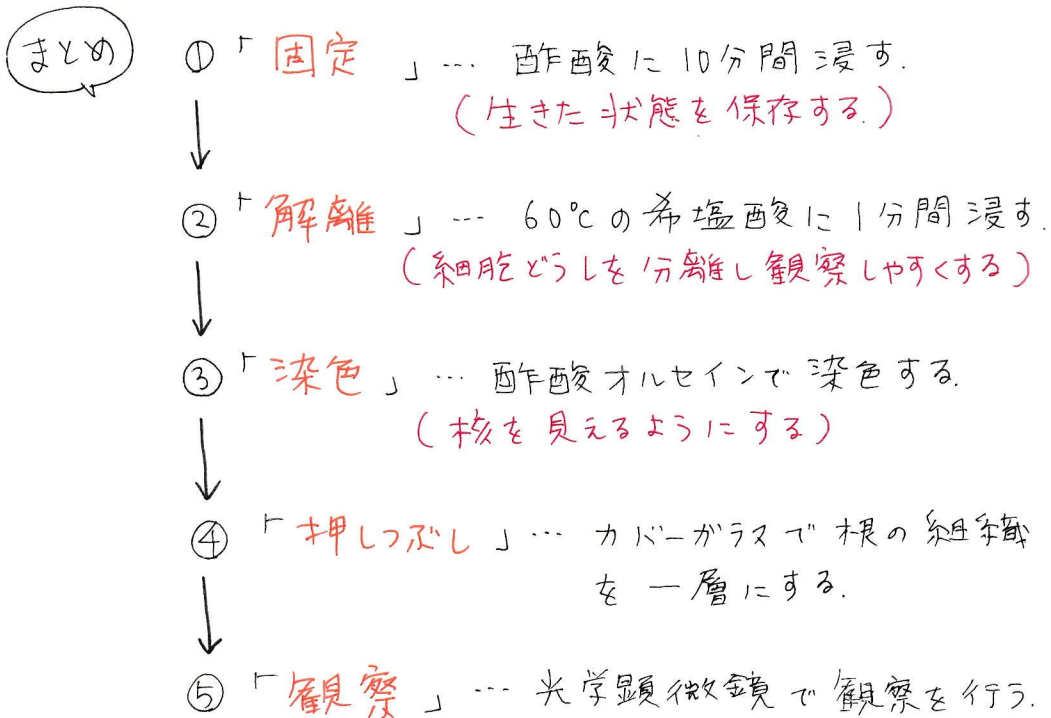 まとめ
①「固定」… 酢酸に10分間浸す.
(生きた状態を保存する.)
②「解離」… 60℃の希塩酸に1分間浸す.
(細胞どうしを分離し観察しやすくする)
③「染色」… 酢酸オルセインで染色する.
(核を見えるようにする)
④「押しつぶし」… カバーガラスで根の組織
を一層にする.
⑤「観察」… 光学顕微鏡で観察を行う.